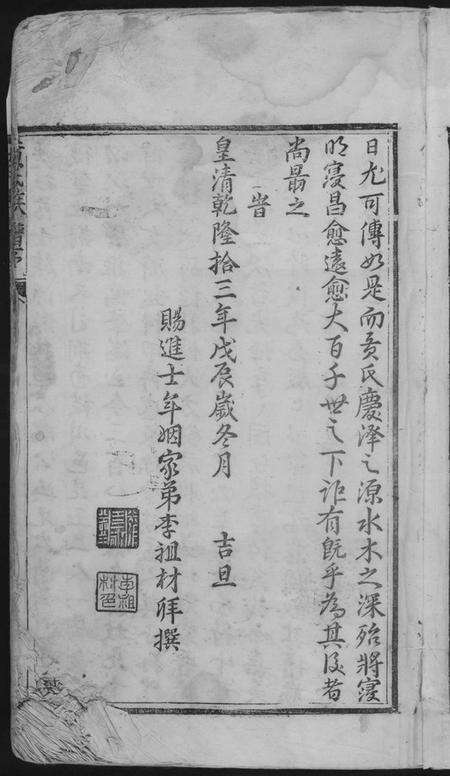 日尤可傳如是而黃氏慶澤之源水木之深殆將寖
明寖昌愈遠愈大百千世之下詎有旣乎為其後者
尚勗之
旹
皇清乾隆拾三年戊辰歲冬月 吉旦
賜進士年姻家弟李祖材拜撰
李祖
材印